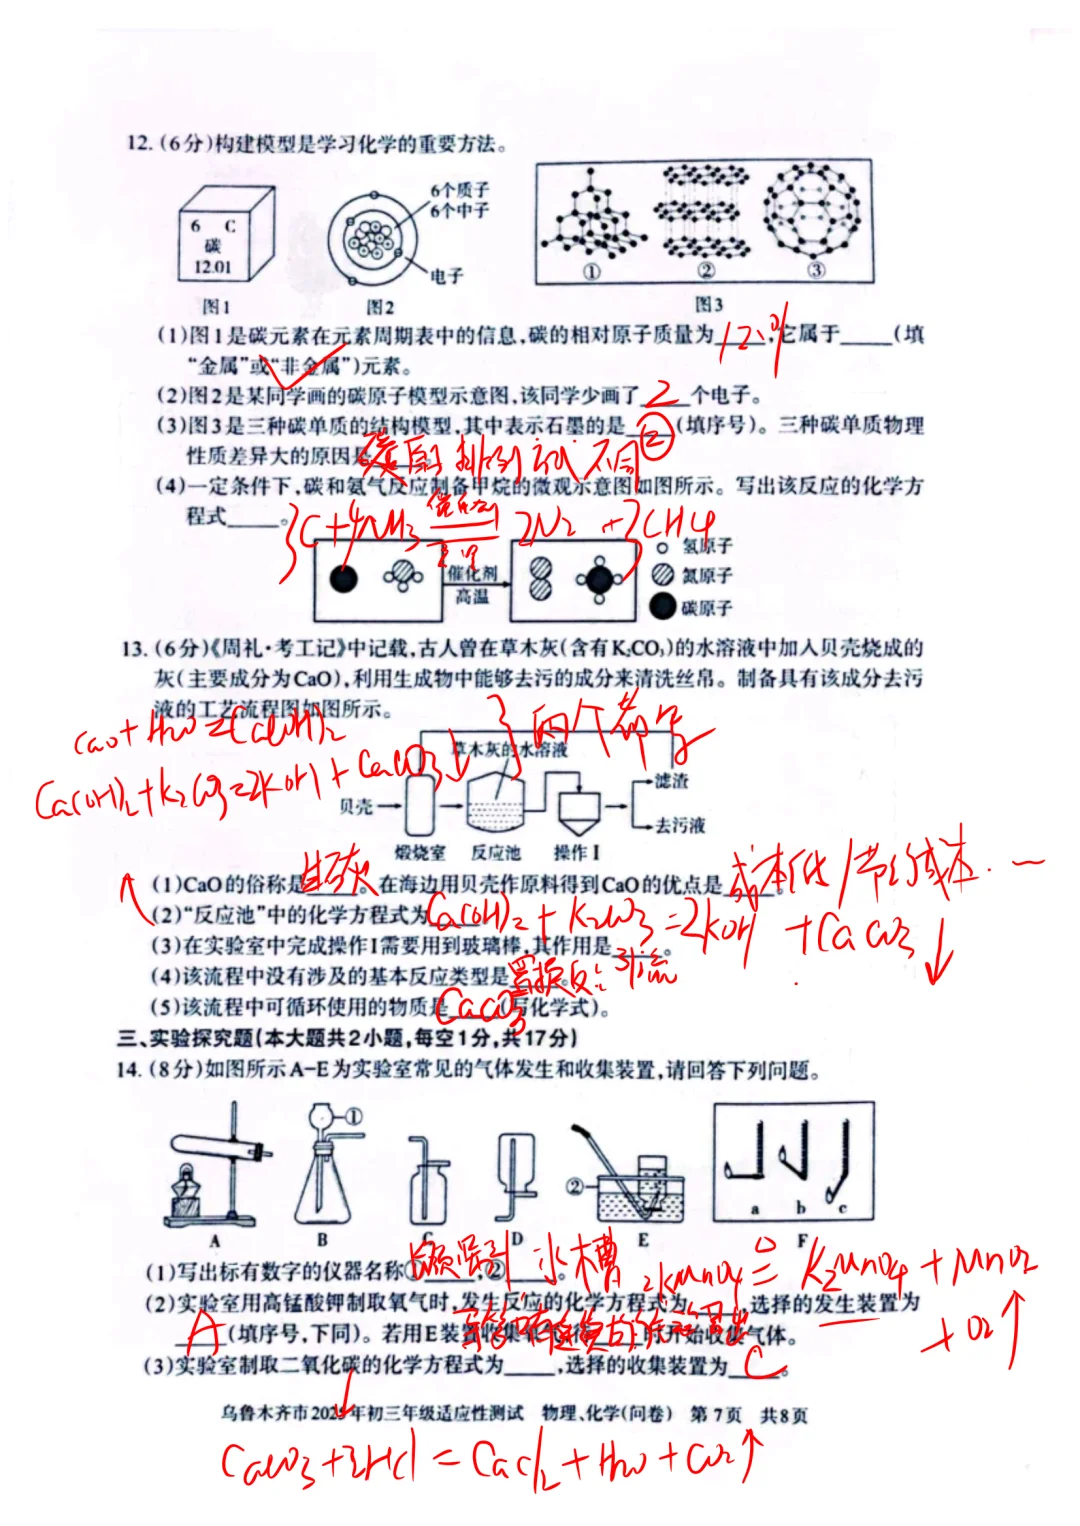 12.(6分)构建模型是学习化学的重要方法。
6 C
碳
12.01
6个质子
6个中子
电子
① ② ③
图1 图2 图3
(1)图1是碳元素在元素周期表中的信息,碳的相对原子质量为12.01,它属于____(填
“金属”或“非金属”)元素。
(2)图2是某同学画的碳原子模型示意图,该同学少画了2个电子。
(3)图3是三种碳单质的结构模型,其中表示石墨的是②(填序号)。三种碳单质物理
性质差异大的原因是碳原子排列方式不同
(4)一定条件下,碳和氨气反应制备甲烷的微观示意图如图所示。写出该反应的化学方
程式____。3C+4NH3 催化剂 高温 2N2+3CH4
催化剂
高温
氢原子
氮原子
碳原子
13.(6分)《周礼·考工记》中记载,古人曾在草木灰(含有K₂CO₃)的水溶液中加入贝壳烧成的
灰(主要成分为CaO),利用生成物中能够去污的成分来清洗丝帛。制备具有该成分去污
液的工艺流程图如图所示。
CaO+H2O=Ca(OH)2
Ca(OH)2+K2CO3=2KOH+CaCO3↓ } 两个都写
草木灰的水溶液
滤渣
贝壳
去污液
煅烧室 反应池 操作Ⅰ
(1)CaO的俗称是生石灰。在海边用贝壳作原料得到CaO的优点是成本低/节约成本
(2)“反应池”中的化学方程式为Ca(OH)2+K2CO3=2KOH+CaCO3↓
(3)在实验室中完成操作Ⅰ需要用到玻璃棒,其作用是____。引流
(4)该流程中没有涉及的基本反应类型是置换反应
(5)该流程中可循环使用的物质是CaCO3(写化学式)。
三、实验探究题(本大题共2小题,每空1分,共17分)
14.(8分)如图所示A-E为实验室常见的气体发生和收集装置,请回答下列问题。
① ② a b c
A B C D E F
(1)写出标有数字的仪器名称①长颈漏斗,②水槽
(2)实验室用高锰酸钾制取氧气时,发生反应的化学方程式为____,选择的发生装置为
2KMnO4 △= K2MnO4+MnO2+O2↑
A(填序号,下同)。若用E装置收集氧气,待____时开始收集气体。
(3)实验室制取二氧化碳的化学方程式为____,选择的收集装置为C。
乌鲁木齐市2025年初三年级适应性测试 物理、化学(问卷) 第7页 共8页
CaCO3+2HCl=CaCl2+H2O+CO2↑